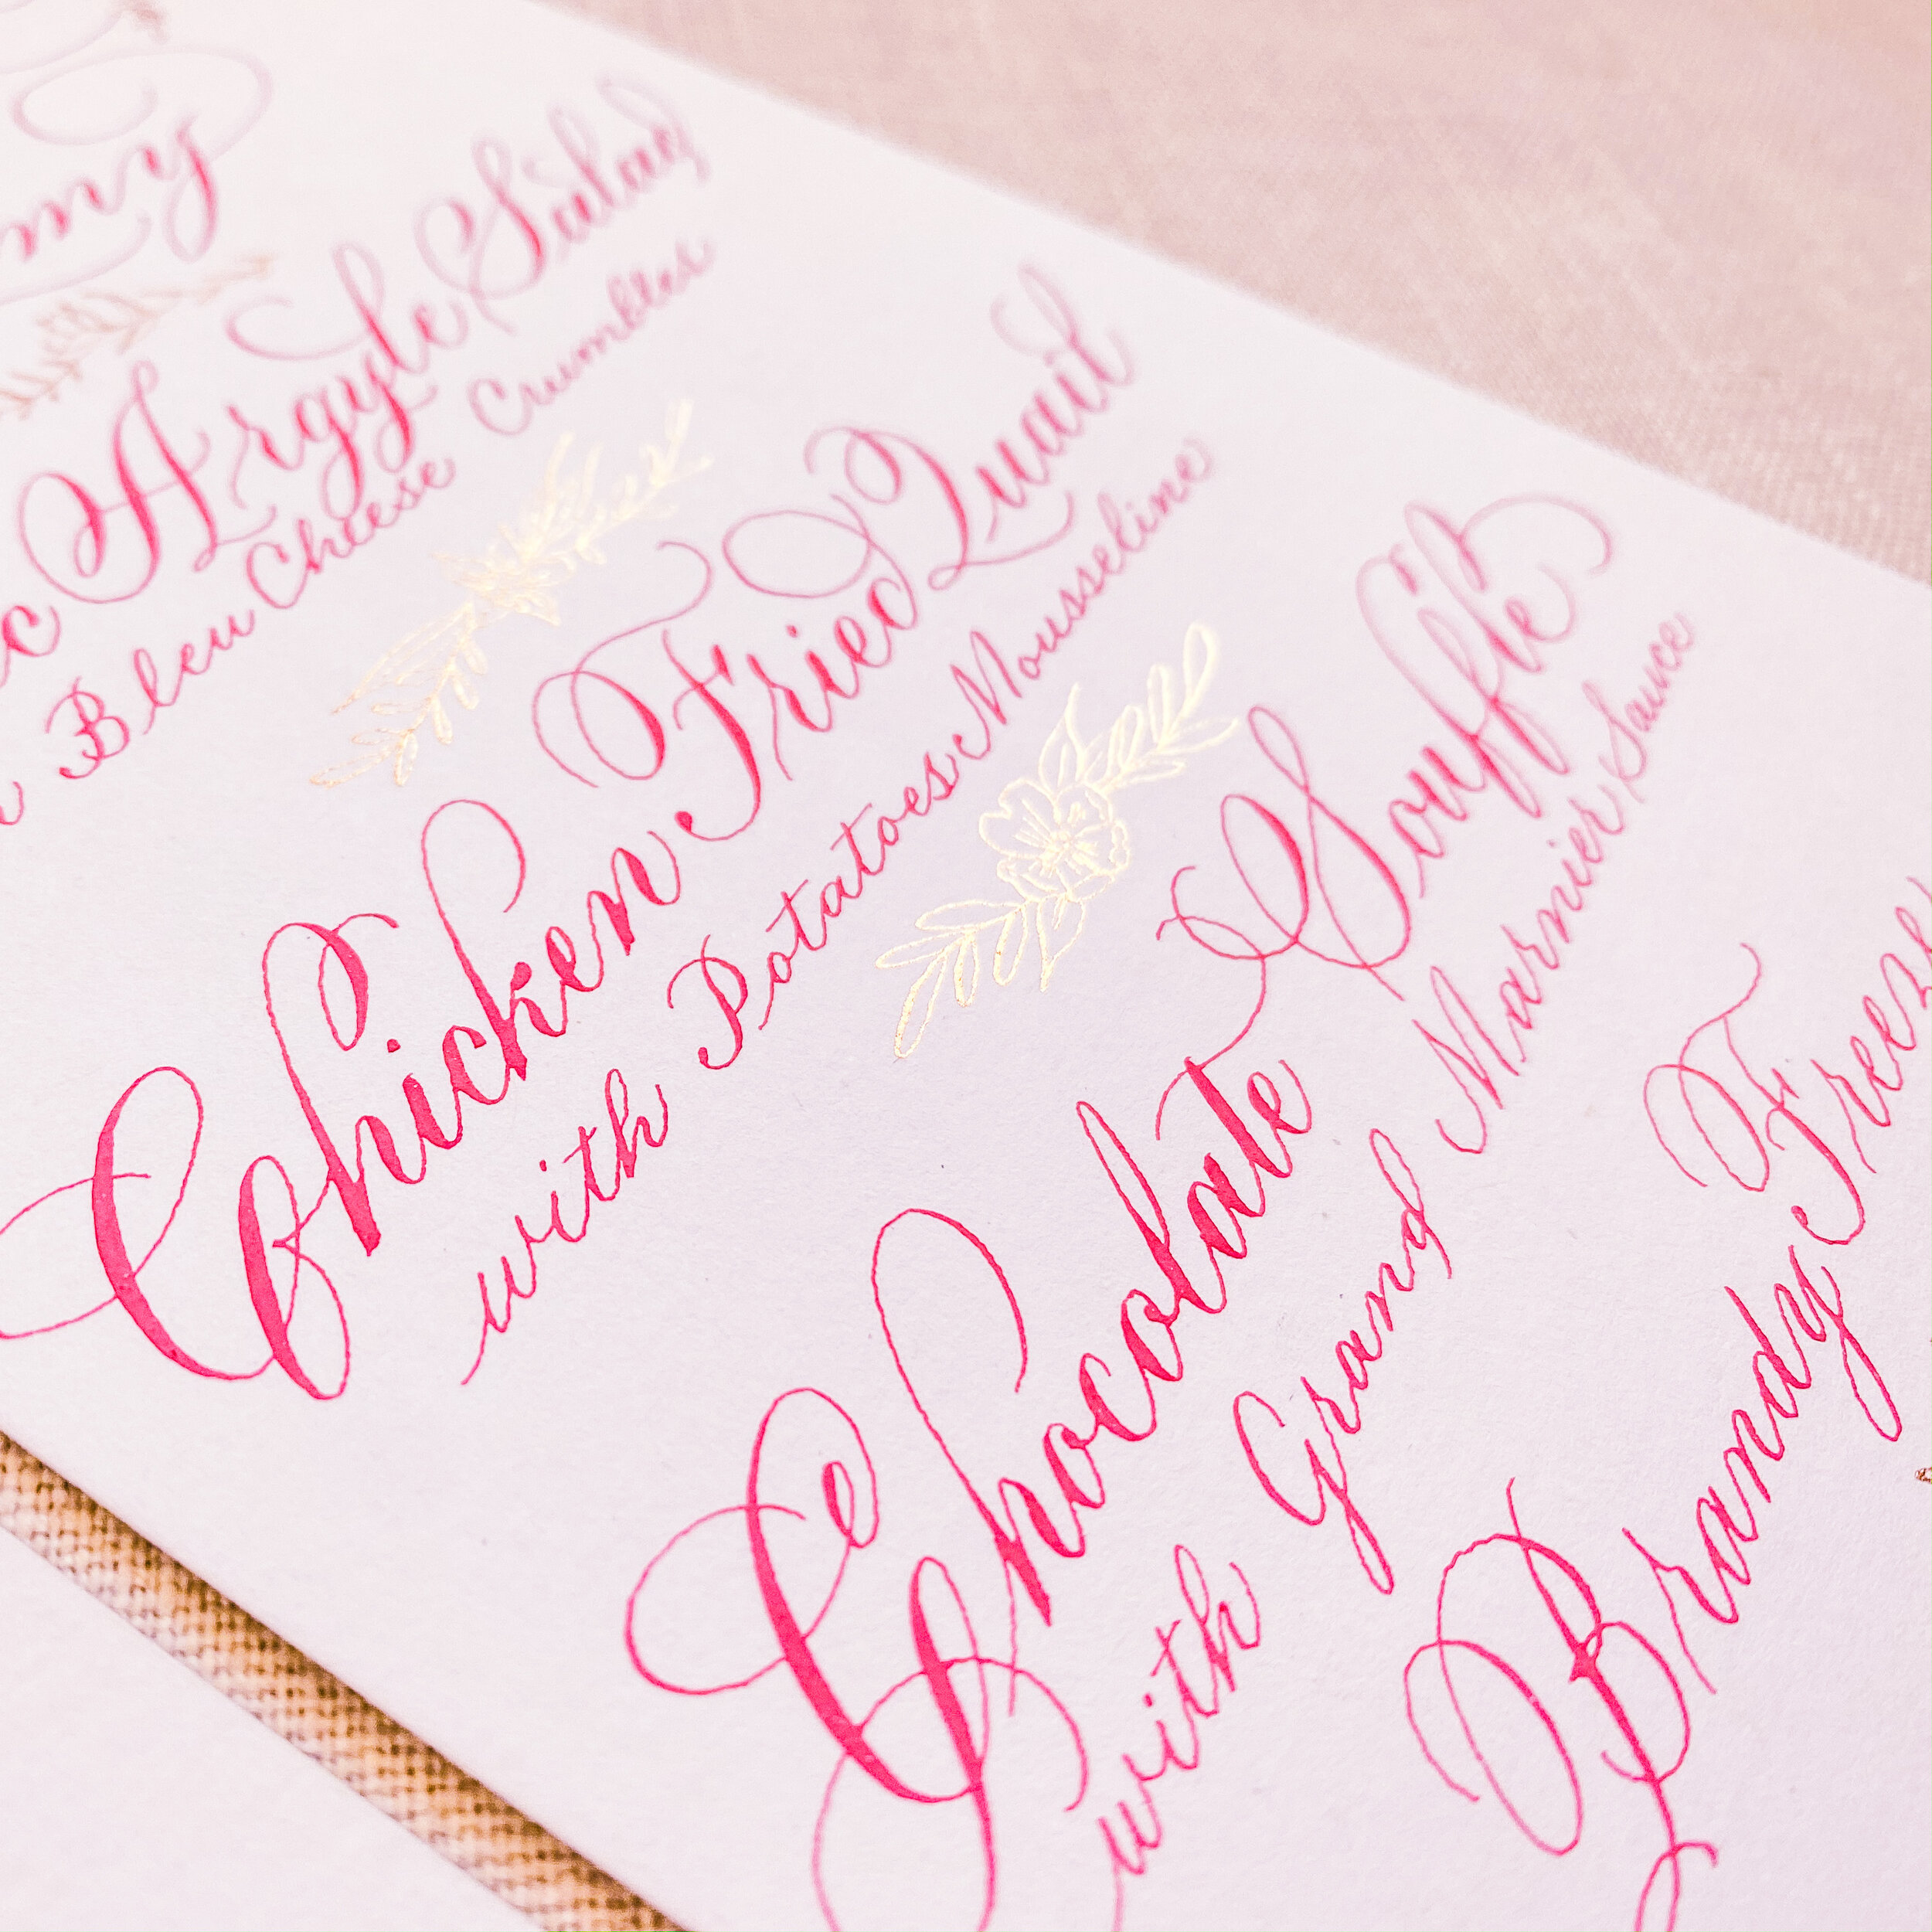 Argyle Salad
Bleu Cheese Crumbles
Chicken Fried Quail
with Potatoes Mousseline
Chocolate Soufflé
with Grand Marnier Sauce
Brandy